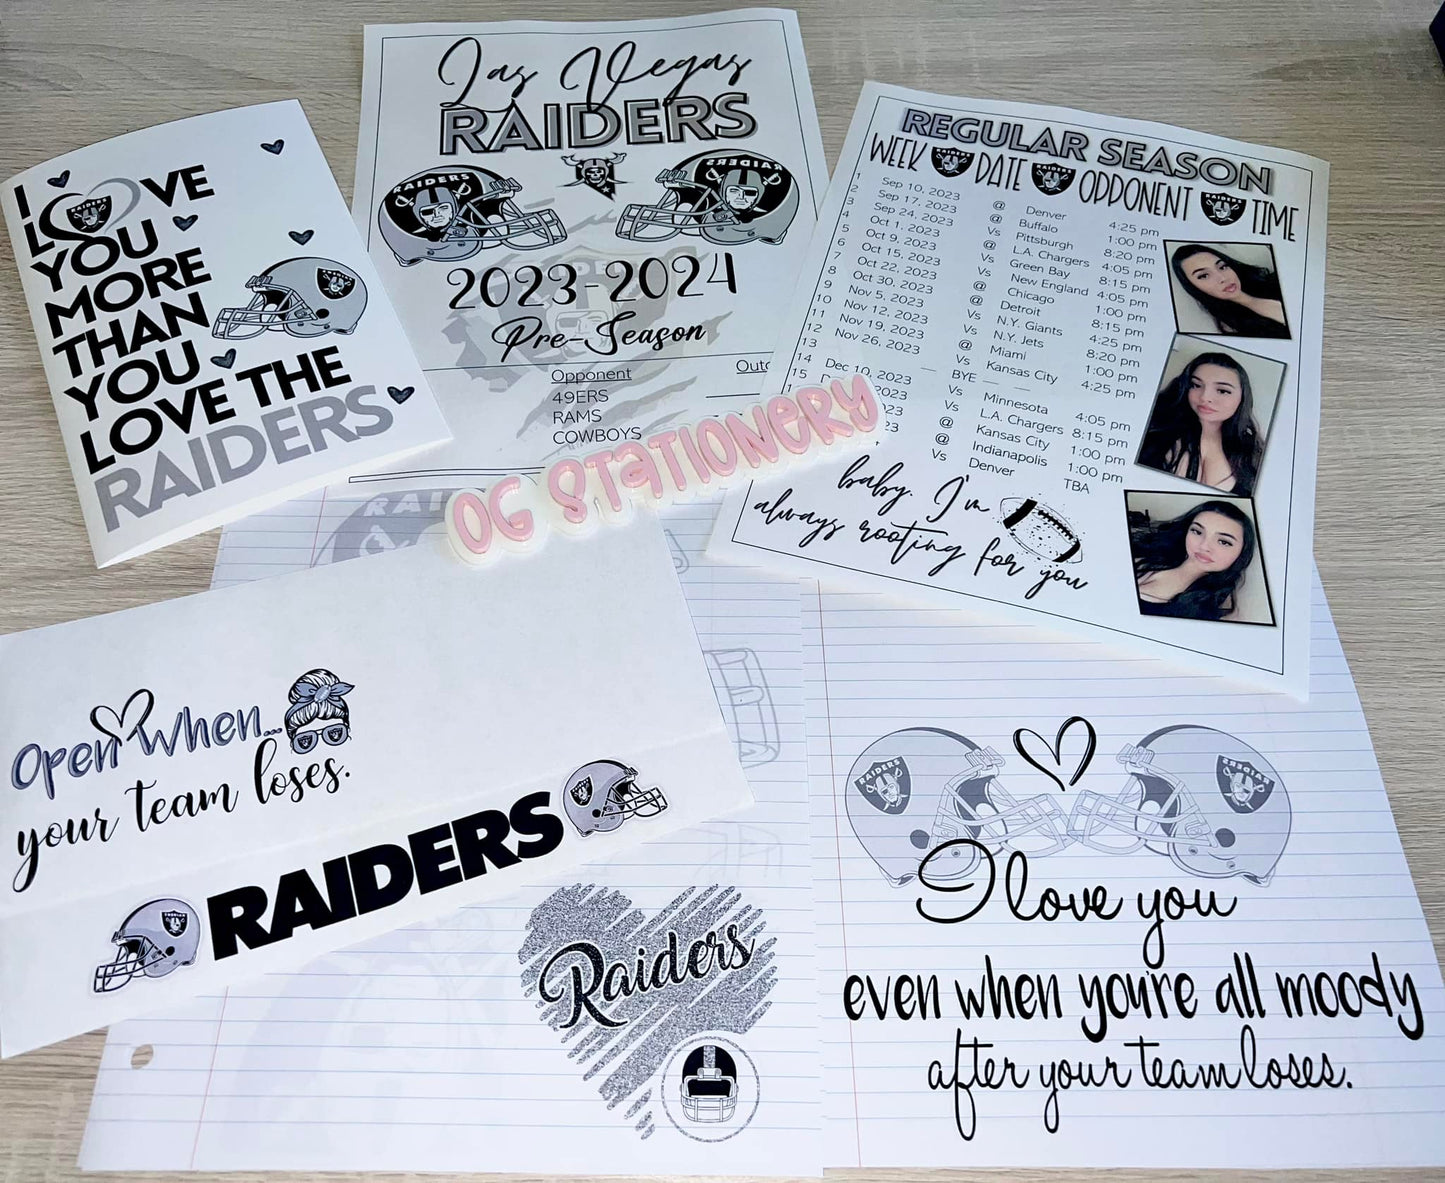 I
LOVE
YOU
MORE
THAN
YOU
LOVE THE
RAIDERS
Las Vegas
RAIDERS
RAIDERS
RAIDERS
2023-2024
Pre-Season
Opponent
49ERS
RAMS
COWBOYS
REGULAR SEASON
WEEK DATE OPPONENT TIME
1 Sep 10, 2023 @ Denver 4:25 pm
2 Sep 17, 2023 @ Buffalo 1:00 pm
3 Sep 24, 2023 Vs Pittsburgh 8:20 pm
4 Oct 1, 2023 @ L.A. Chargers 4:05 pm
5 Oct 9, 2023 Vs Green Bay 8:15 pm
6 Oct 15, 2023 Vs New England 4:05 pm
7 Oct 22, 2023 @ Chicago 1:00 pm
8 Oct 30, 2023 @ Detroit 8:15 pm
9 Nov 5, 2023 Vs N.Y. Giants 4:25 pm
10 Nov 12, 2023 Vs N.Y. Jets 8:20 pm
11 Nov 19, 2023 @ Miami 1:00 pm
12 Nov 26, 2023 Vs Kansas City 4:25 pm
13 — BYE — —
14 Dec 10, 2023 Vs Minnesota 4:05 pm
15 Vs L.A. Chargers 8:15 pm
@ Kansas City 1:00 pm
@ Indianapolis 1:00 pm
Vs Denver TBA
baby, I'm
always rooting for you
OG STATIONERY
Open When...
your team loses.
RAIDERS
Raiders
RAIDERS
RAIDERS
I love you
even when you're all moody
after your team loses.